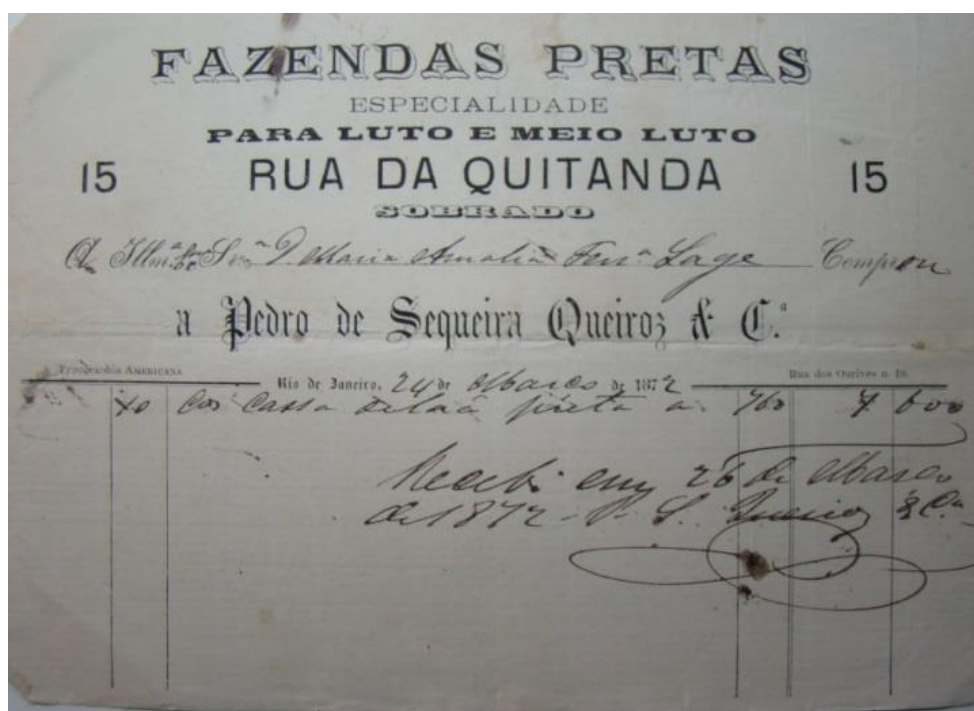 FAZENDAS PRETAS
ESPECIALIDADE
PARA LUTO E MEIO LUTO
15 RUA DA QUITANDA 15
SOBRADO
A Illm.ª Snr.ª D. Maria Amalia Ferr.ª Lage Comprou
a Pedro de Sequeira Queiroz & C.ª
Typographia Americana Rua dos Ourives n. 19.
Rio de Janeiro, 24 de Março de 1872
10 Cov Cassa de laã preta a 760 7 600
Recebi em 26 de Março
de 1872 - P. S. Queiroz & C.ª